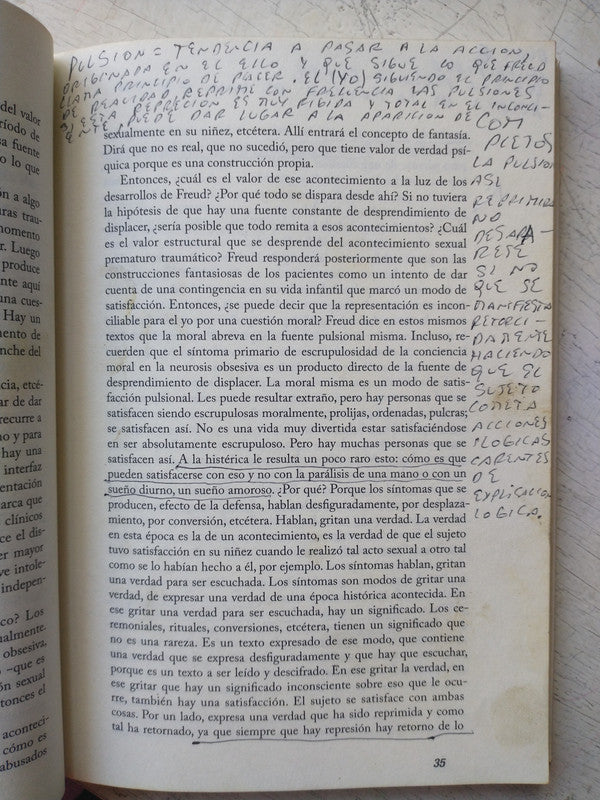 PULSION = TENDENCIA A PASAR A LA ACCION,
ORIGINADA EN EL ELLO Y QUE SIGUE LO QUE FREUD
LLAMA PRINCIPIO DE PLACER. EL (YO) SIGUIENDO EL PRINCIPIO
DE REALIDAD REPRIME CON FRECUENCIA LAS PULSIONES
SI ESTA REPRECION ES MUY RIGIDA Y TOTAL EN EL INCONCI-
ENTE, PUEDE DAR LUGAR A LA APARICION DE COM
PLEJOS
LA PULSION
ASI
REPRIMIDA
NO
DESAPA-
RESE
SI NO
QUE SE
MANIFIESTA
RETORCI-
DAMENTE
HACIENDO
QUE EL
SUJETO
COMETA
ACCIONES
ILOGICAS
CARENTES
DE
EXPLICACION
LOGICA.
sexualmente en su niñez, etcétera. Allí entrará el concepto de fantasía.
Dirá que no es real, que no sucedió, pero que tiene valor de verdad psí-
quica porque es una construcción propia.
Entonces, ¿cuál es el valor de ese acontecimiento a la luz de los
desarrollos de Freud? ¿Por qué todo se dispara desde ahí? Si no tuviera
la hipótesis de que hay una fuente constante de desprendimiento de
displacer, ¿sería posible que todo remita a esos acontecimientos? ¿Cuál
es el valor estructural que se desprende del acontecimiento sexual
prematuro traumático? Freud responderá posteriormente que son las
construcciones fantasiosas de los pacientes como un intento de dar
cuenta de una contingencia en su vida infantil que marcó un modo de
satisfacción. Entonces, ¿se puede decir que la representación es incon-
ciliable para el yo por una cuestión moral? Freud dice en estos mismos
textos que la moral abreva en la fuente pulsional misma. Incluso, re-
cuerden que el síntoma primario de escrupulosidad de la conciencia
moral en la neurosis obsesiva es un producto directo de la fuente de
desprendimiento de displacer. La moral misma es un modo de satis-
facción pulsional. Les puede resultar extraño, pero hay personas que se
satisfacen siendo escrupulosas moralmente, prolijas, ordenadas, pulcras;
se satisfacen así. No es una vida muy divertida estar satisfaciéndose
en ser absolutamente escrupuloso. Pero hay muchas personas que se
satisfacen así. A la histérica le resulta un poco raro esto: cómo es que
pueden satisfacerse con eso y no con la parálisis de una mano o con un
sueño diurno, un sueño amoroso. ¿Por qué? Porque los síntomas que se
producen, efecto de la defensa, hablan desfiguradamente, por desplaza-
miento, por conversión, etcétera. Hablan, gritan una verdad. La verdad
en esta época es la de un acontecimiento, es la verdad de que el sujeto
tuvo satisfacción en su niñez cuando le realizó tal acto sexual a otro tal
como se lo habían hecho a él, por ejemplo. Los síntomas hablan, gritan
una verdad para ser escuchada. Los síntomas son modos de gritar una
verdad, de expresar una verdad de una época histórica acontecida. En
ese gritar una verdad para ser escuchada, hay un significado. Los ce-
remoniales, rituales, conversiones, etcétera, tienen un significado que
no es una rareza. Es un texto expresado de ese modo, que contiene
una verdad que se expresa desfiguradamente y que hay que escuchar,
porque es un texto a ser leído y descifrado. En ese gritar la verdad, en
ese gritar que hay un significado inconsciente sobre eso que le ocu-
rre, también hay una satisfacción. El sujeto se satisface con ambas
cosas. Por un lado, expresa una verdad que ha sido reprimida y como
tal ha retornado, ya que siempre que hay represión hay retorno de lo
35